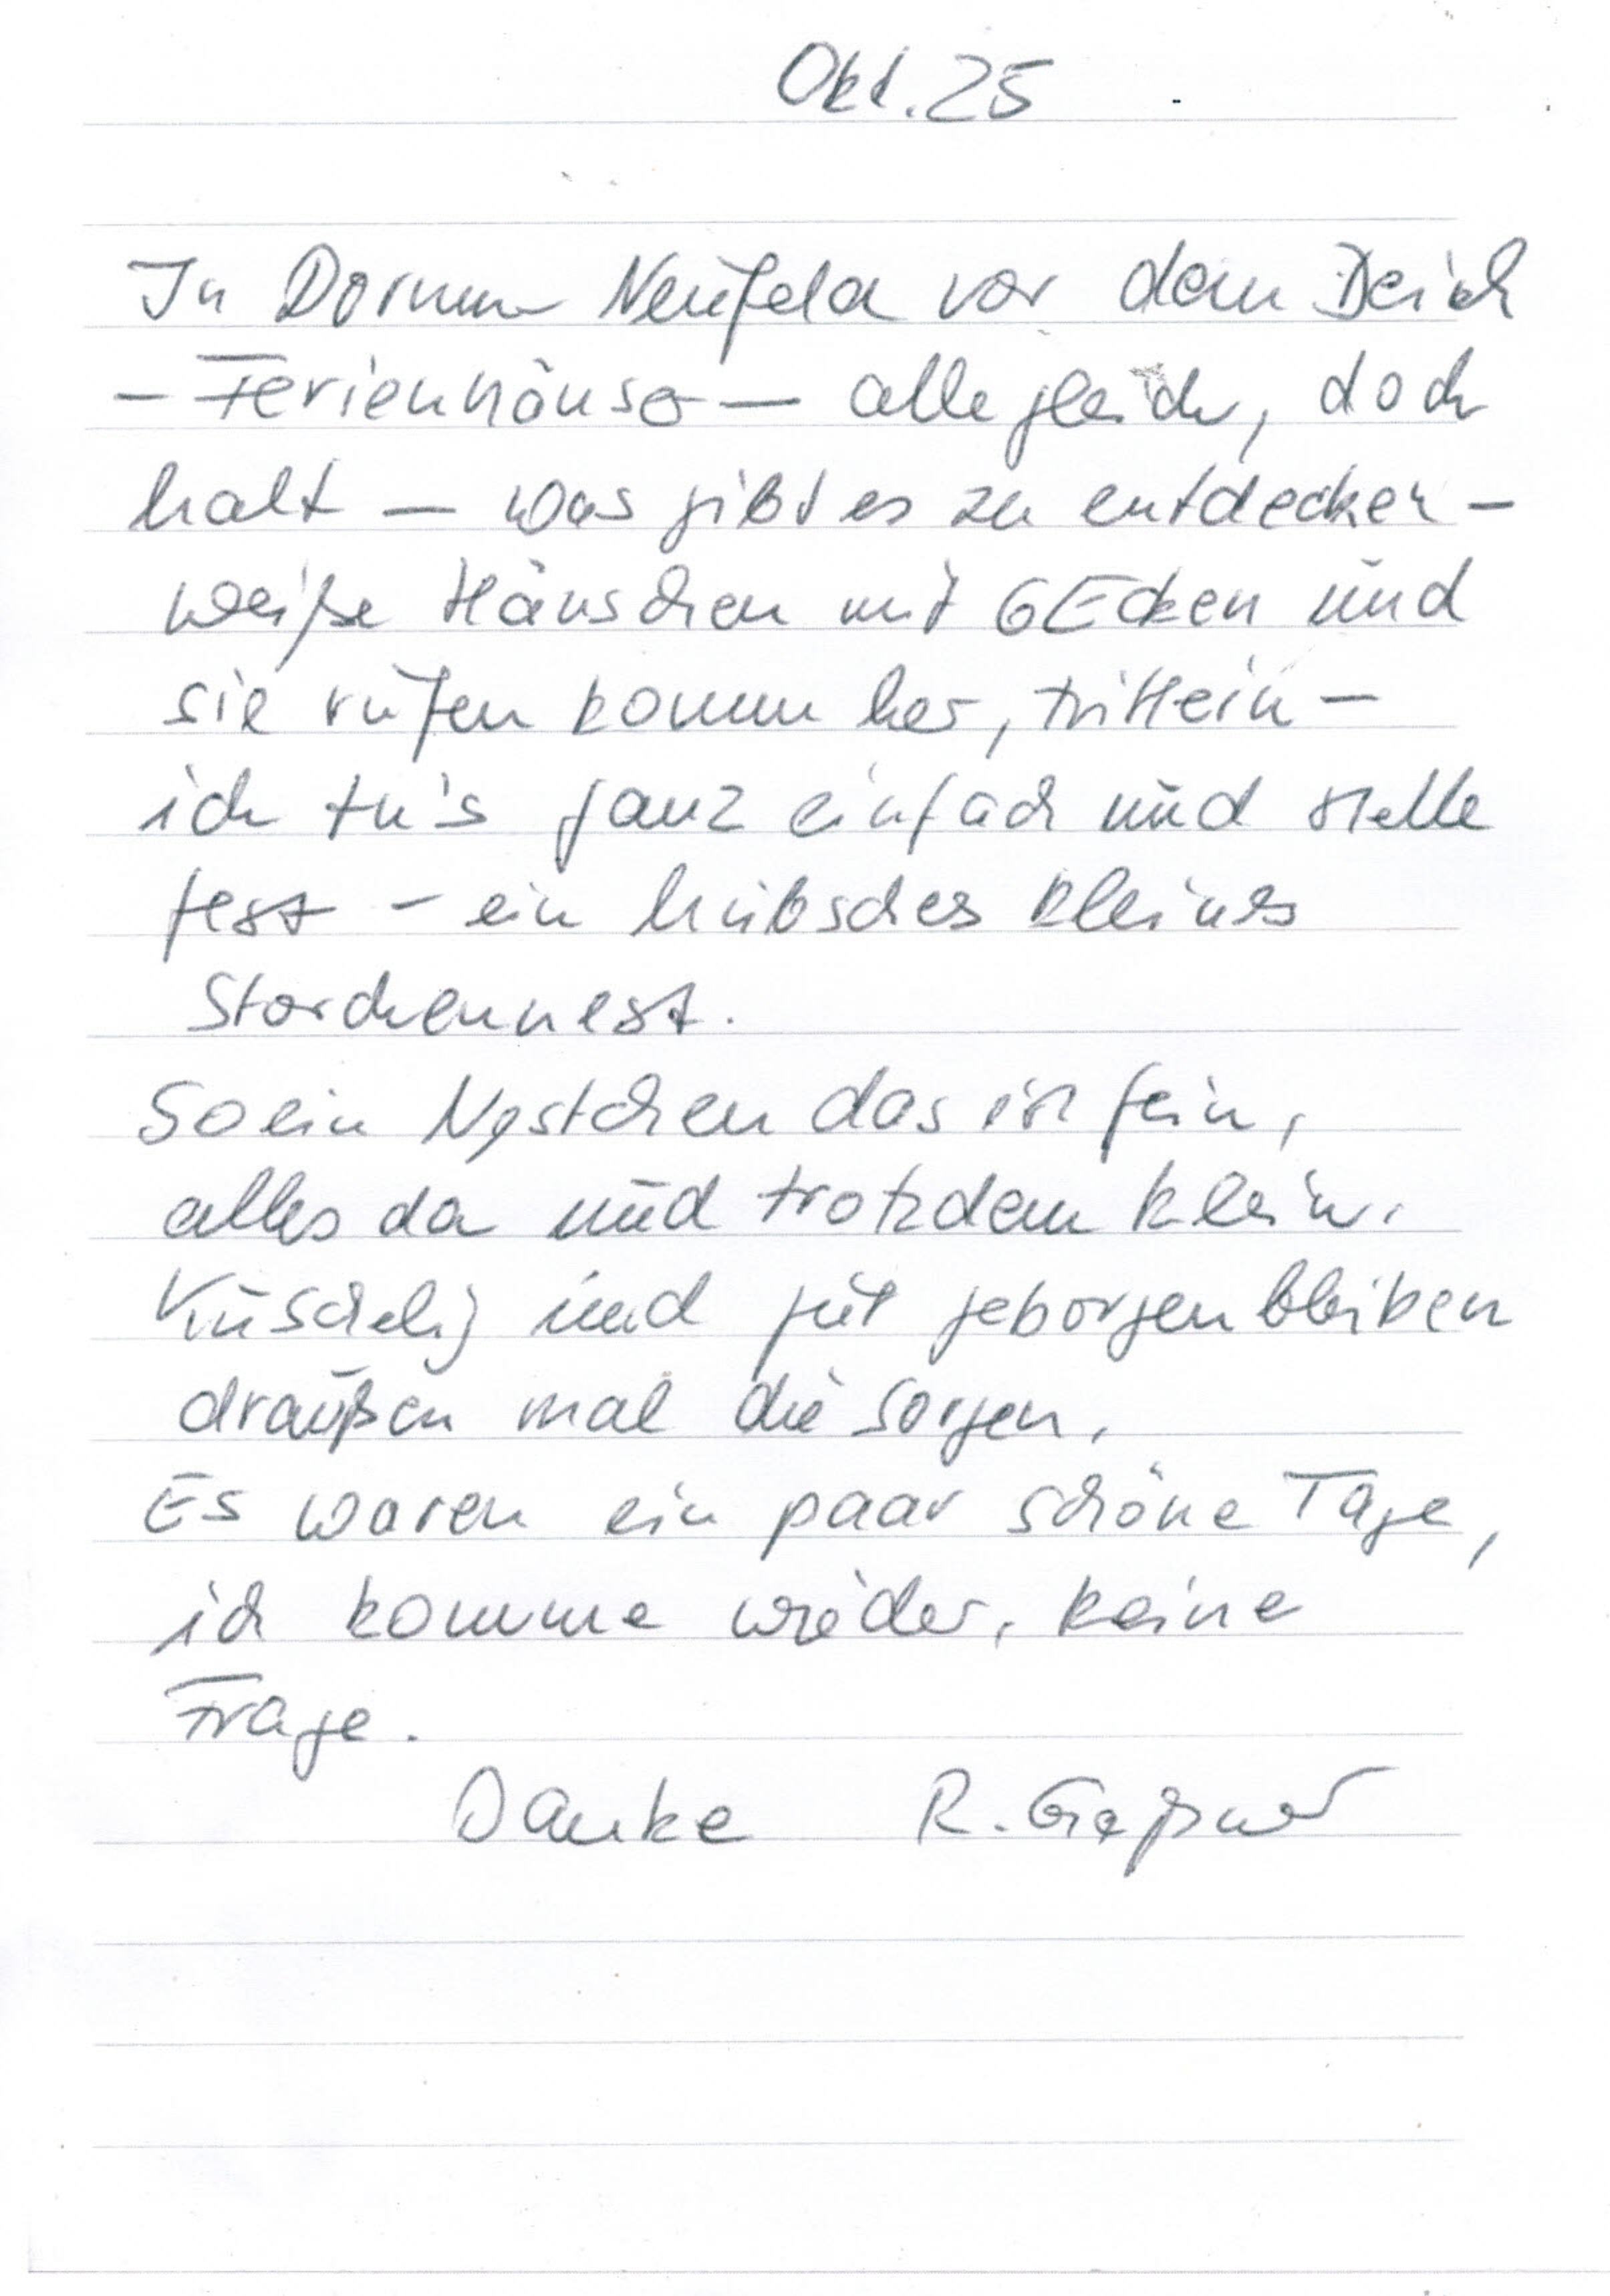 Okt. 25
In Dornum Neufeld vor dem Deich
- Ferienhäuser - alle gleich, doch
halt - was gibt es zu entdecken -
weiße Häuschen mit 6 Ecken und
sie rufen komm her, tritt ein -
ich tu's ganz einfach und stelle
fest - ein hübsches kleines
Storchennest.
So ein Nestchen das ist fein,
alles da und trotzdem klein.
Kuschelig und gut geborgen bleiben
draußen mal die Sorgen.
Es waren ein paar schöne Tage,
ich komme wieder, keine
Frage.
Danke R.